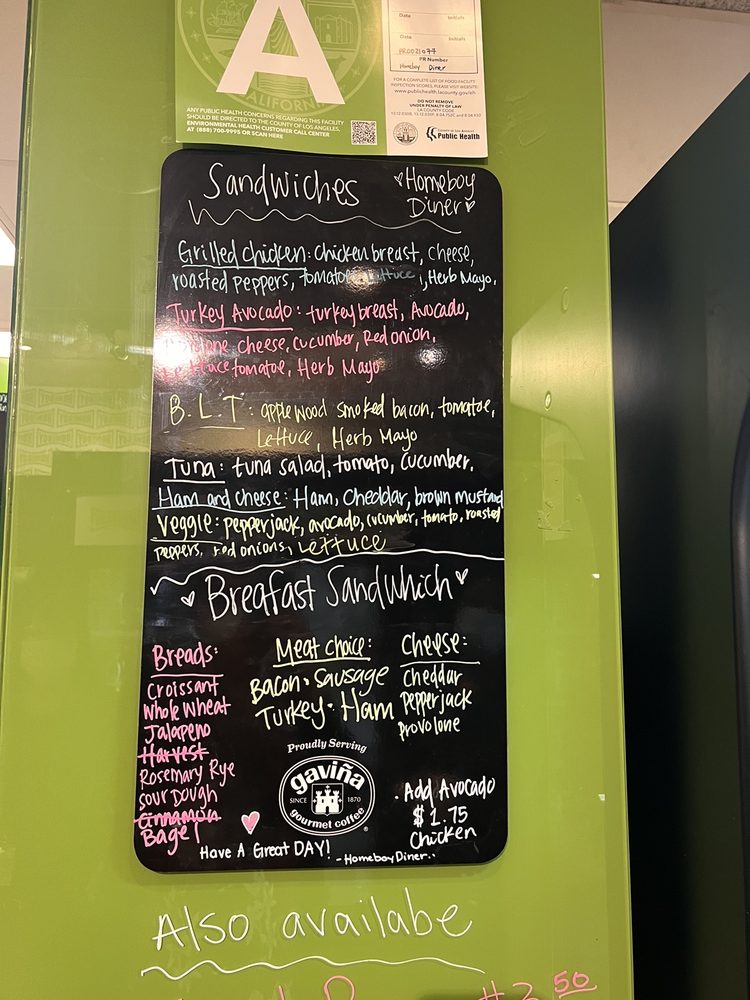 A
CALIFORNIA
ANY PUBLIC HEALTH CONCERNS REGARDING THIS FACILITY
SHOULD BE DIRECTED TO THE COUNTY OF LOS ANGELES,
ENVIRONMENTAL HEALTH CUSTOMER CALL CENTER
AT (888) 700-9995 OR SCAN HERE
Date Initials
Date Initials
PR0021077
PR Number
Homeboy Diner
FOR A COMPLETE LIST OF FOOD FACILITY
INSPECTION SCORES, PLEASE VISIT WEBSITE:
www.publichealth.lacounty.gov/eh
DO NOT REMOVE
UNDER PENALTY OF LAW
LA COUNTY CODE
Public Health
Sandwiches
Homeboy
Diner
Grilled chicken: chicken breast, cheese,
roasted peppers, tomatoe, lettuce, Herb Mayo.
Turkey Avocado: turkey breast, Avocado,
cheese, cucumber, Red onion,
Lettuce tomatoe, Herb Mayo
B.L.T: applewood smoked bacon, tomatoe,
Lettuce, Herb Mayo
Tuna: tuna salad, tomato, cucumber.
Ham and cheese: Ham, Cheddar, brown mustard
Veggie: pepperjack, avocado, cucumber, tomato, roasted
peppers, red onions, Lettuce
Breafast Sandwhich
Breads:
Croissant
Whole Wheat
Jalapeno
Harvest
Rosemary Rye
Sour Dough
Cinnamon
Bagel
Meat choice:
Bacon • Sausage
Turkey • Ham
Cheese:
Cheddar
Pepperjack
Provolone
Proudly Serving
gaviña
SINCE 1870
gourmet coffee
• Add Avocado
$1.75
Chicken
Have A Great DAY! - Homeboy Diner..
Also availabe